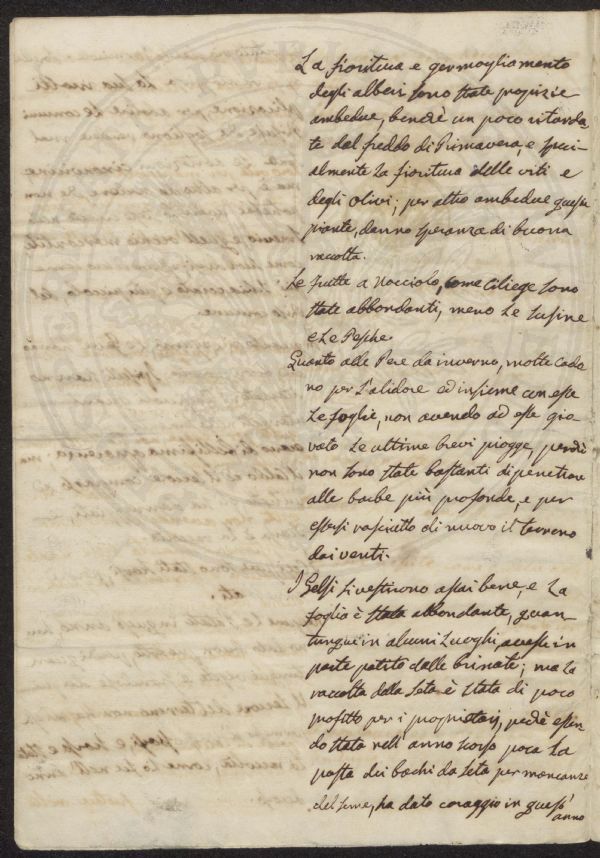 La fioritura e germogliamento
degli alberi sono state propizie
ambedue, benchè un poco ritarda-
te dal freddo di Primavera, e speci-
almente la fioritura delle viti e
degli olivi; per altro ambedue queste
piante, danno speranza di buona
raccolta.
Le frutte a nocciolo, come ciliege sono
state abbondanti, meno le susine
e le Pesche.
Quanto alle Pere da inverno, molte cado
no per l'alidore ed insieme con esse
le foglie, non avendo ad esse gio-
vato le ultime brevi piogge, perchè
non sono state bastanti di penetrare
alle barbe più profonde, e per
essersi rasciutto di nuovo il terreno
dai venti.
I Gelsi si vestirono assai bene, e la
foglia è stata abbondante, quan-
tunque in alcuni luoghi, avesse in
parte patito dalle brinate; ma la
raccolta della Seta è stata di poco
profitto per i proprietarj, perchè essen
do stata nell'anno scorso poca la
posta dei bachi da seta per mancanza
del seme, ha dato coraggio in quest'
anno